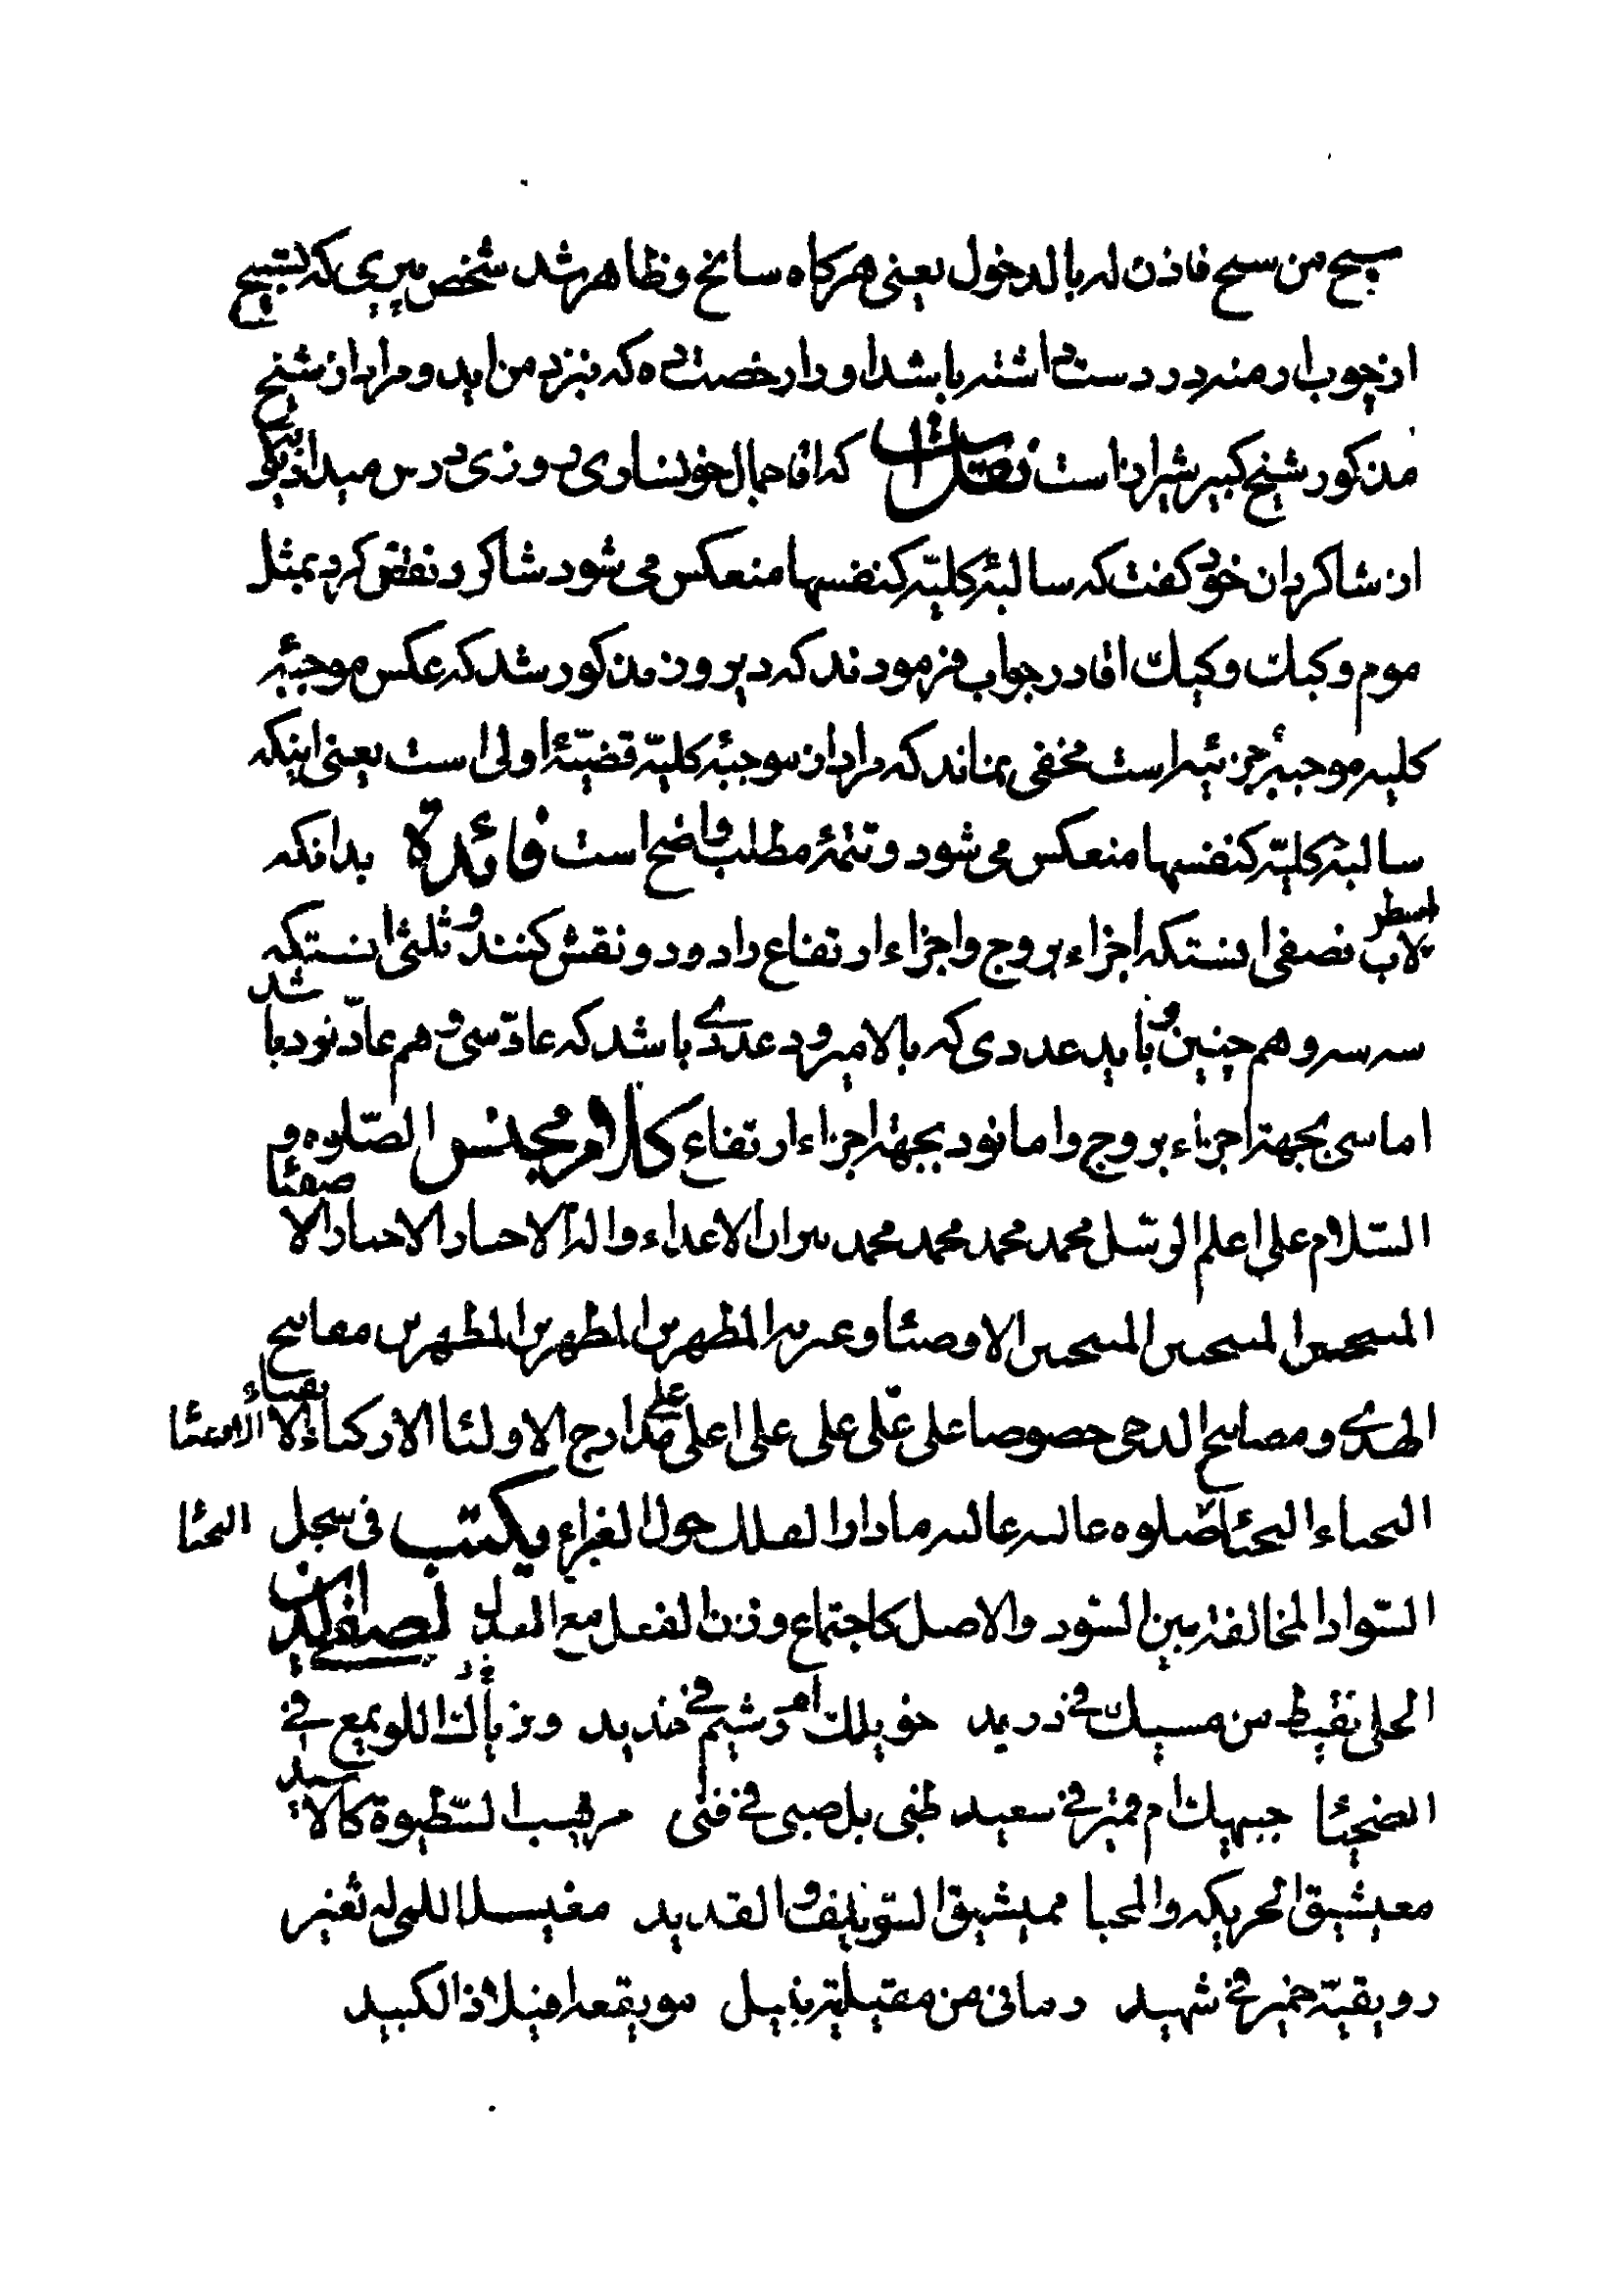 سبح من سبح فاذن له بالدخول یعنی هرکاه سانح و ظاهر شد شخص پیری که تسبیح
از چوب ارمنه در دست داشته باشد او را رخصت ده که نبزد من اید و مراد از شیخ
مذکور شیخ کبیر شیراز است نقلست که اقا جمال خونساری روزی درس میداد بیکی
از شاکردان خود کفت که سالبهٔ کلیّه کنفسها منعکس می شود شاکرد نقض کرد بمثل
موم و کبک و کپک اقا در جواب فرمودند که دیروز مذکور شد که عکس موجبهٔ
کلیه موجبهٔ جزئیه است مخفی نماند که مراد از موجبهٔ کلیّه قضیّهٔ اولی است یعنی اینکه
سالبهٔ کلیّه کنفسها منعکس می شود و تتمهٔ مطلب واضح است فائدة بدانکه
اسطرلاب نصفی انستکه اجزاء بروج و اجزاء ارتفاع را دو دو نقش کنند و ثلثی انستکه
سه سه و هم چنین و باید عددی که بالا میرود عددی باشد که عادّ سی و هم عادّ نود باشد
اما سی بجهة اجزاء بروج و اما نود بجهة اجزاء ارتفاع کلام مجنس الصّلوه و
السّلام علی اعلم الرسل محمد محمد محمد محمد سران الاعداء و اله الاحساد الاحساد الا صفئا
المسحسں المسحسں المسحسں الاوصئا و عىرىه المطهرىں المطهرىں المطهرىں معاسح
الهدی و مصاىىح الدحی حصوصا علی علی علی علی اعلی علی مدارج الاولئا الارکىاء الا نقىىاء الاوعىئا
الىحىاء الىحىئا صلوه عالىه عالىه ما دار الفلك حول الغبراء ویکتب فی سجل النحىا
السّواد المخالفة بین السّود والاصل کاجتماع وزن الفعل مع العدل لصفی الدین
الحلی نقیط من مسیك فی ورید خویلك ام وشیم فی خدید وذیاك اللویمع فی
الضحیئا جبیهك ام قمیر فی سعید ظبی بل صبی فی قبی مرهیب السّطیوة کالاسید
معیشیق الحریکه والمحیا ممیشیق السّویلف والقدید معیسل اللمی له ثغیر
رویقیة خمیر فی شهید رمانی من مقیلیة بنبیل مویقعها فیلاذ الکبید